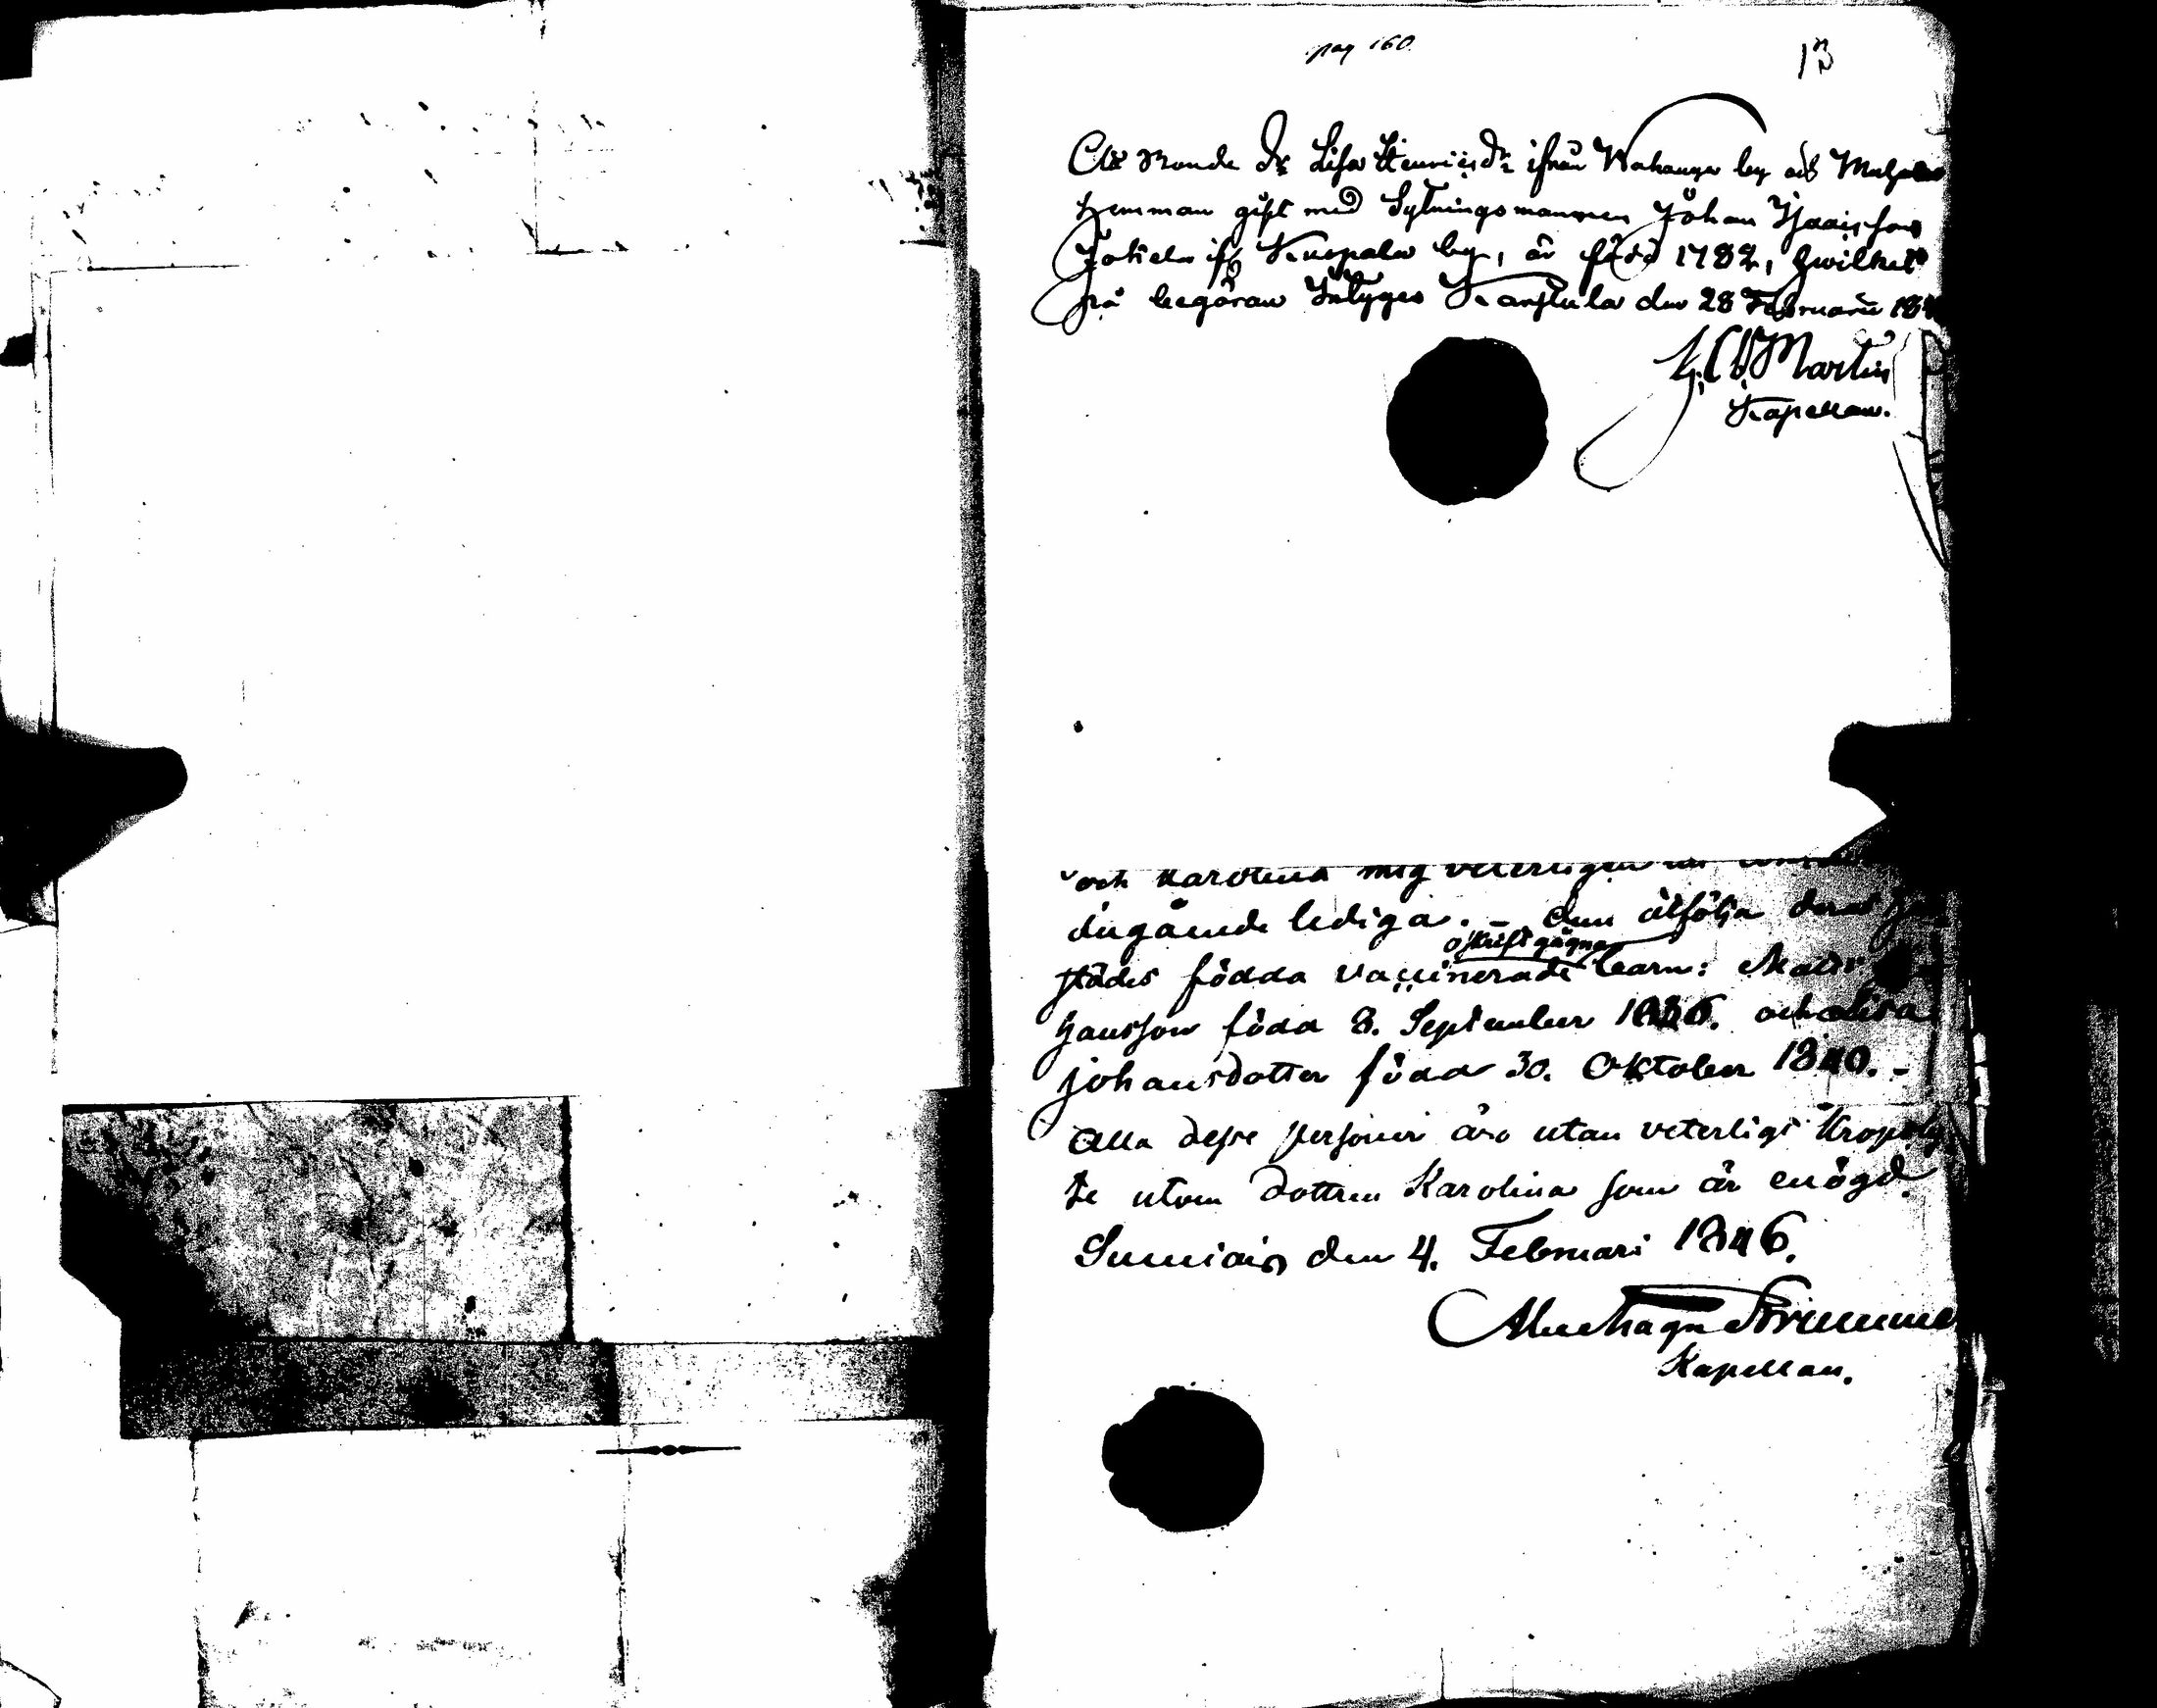 pag 160.
13
Att Bonde dr Lisa Henricsdr ifrån Wahanga by och
Hemman gift med Sytningsmannen Johan Isaacsson
Jokela ifr Kuopala by, är född 1782, hwilket
på begäran intygas Kanstula den 28 Februarii 184
Martin
Kapellan.
och Karolina mig veterligen
ingående lediga. – dem åtfölja deras
oskriftgågna
städes födda vaccinerade barn:
Hansson född 8. September 1836. och Lisa
Johansdotter född 30. Oktober 1840. –
Alla desse personer äro utan veterligt kroppsly
te utom dottren Karolina som är enögd.
Sumiais den 4. Februari 1846.
Kapellan.